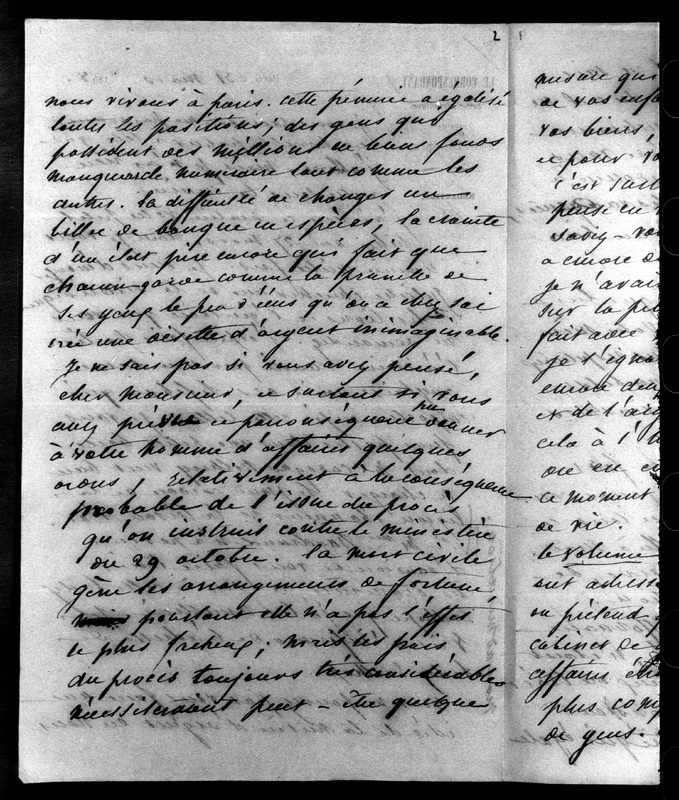 2
nous vivons à paris. cette pénurie a égalisé
toutes les positions; des gens qui
possèdent des millions en biens fonds
manquent de numéraire tout comme les
autres. la difficulté de changer un
billet de banque en espèces, la crainte
d'un état pire encore qui fait que
chacun garde comme la prunelle de
ses yeux le peu d'écus qu'on a chez soi
crée une disette d'argent inimaginable.
Je ne sais pas si vous avez pensé,
cher monsieur, et surtout si vous
avez prévu et par conséquence pu donner
à votre homme d'affaires quelques
ordres, relativement à la conséquence
probable de l'issue du procès
qu'on instruit contre le ministère
du 29 octobre. la mort civile
gêne les arrangements de fortune,
pourtant elle n'a pas l'effet
le plus facheux; mais les frais
du procès toujours très considérables
nécessiteraient peut-être quelque
mesure qui
de vos enfa
vos biens,
et pour vo
c'est
pense en
savez-vo
a encore d
je n'avais
sur la
fait avec
je l'igno
encore d
et de l'arg
cela à l'h
ou en
ce moment
de vie.
le volume
ont adressé
on prétend q
cabinet de
affaires êtr
plus com
de gens.